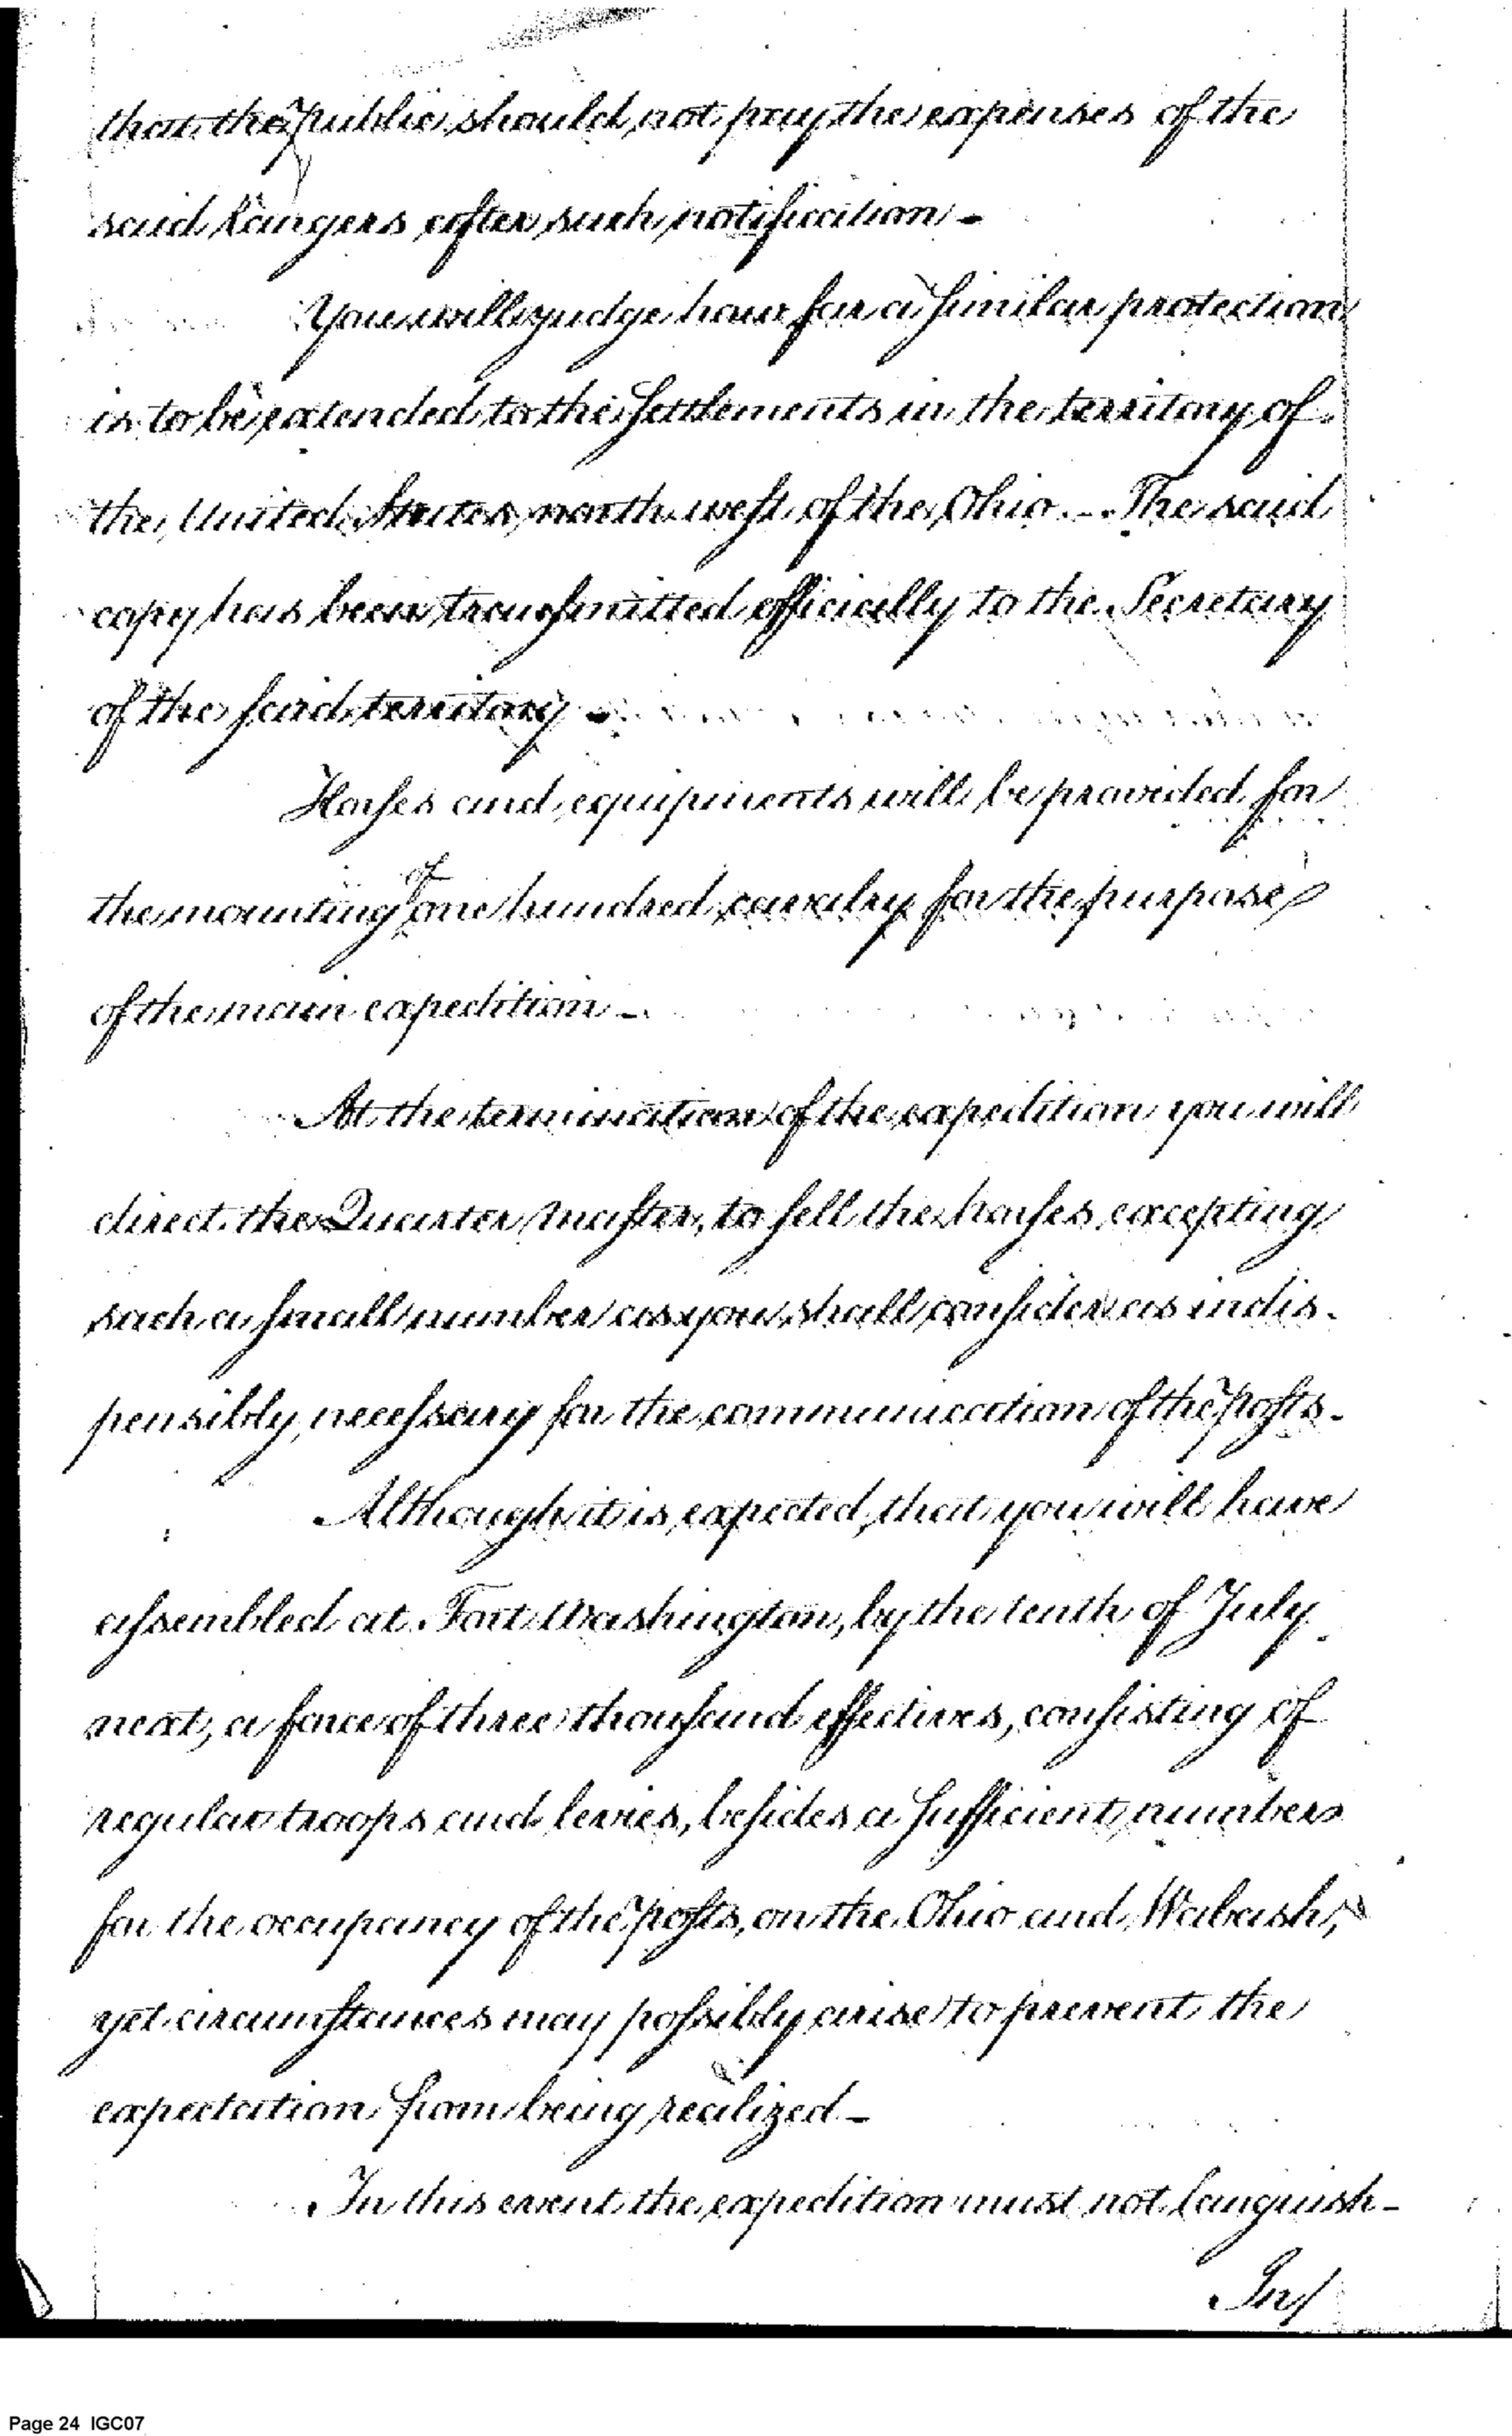 that the public should not pay the expenses of the
said Rangers after such notification -
You will judge how far a similar protection
is to be extended to the settlements in the territory of
the United States, north west of the Ohio. - The said
copy has been transmitted officially to the Secretary
of the said territory -
Horses and equipments will be provided for
the mounting of one hundred cavalry for the purpose
of the main expedition -
At the termination of the expedition you will
direct the Quarter Master, to sell the horses, excepting
such a small number as you shall consider as indis-
pensibly, necessary for the communication of the posts.
Although it is expected, that you will have
assembled at Fort Washington, by the tenth of July
next, a force of three thousand effectives, consisting of
regular troops and levies, besides a sufficient number
for the occupancy of the posts, on the Ohio and Wabash,
yet circumstances may possibly arise to prevent the
expectation from being realized -
In this event the expedition must not languish -
In/
Page 24 IGC07